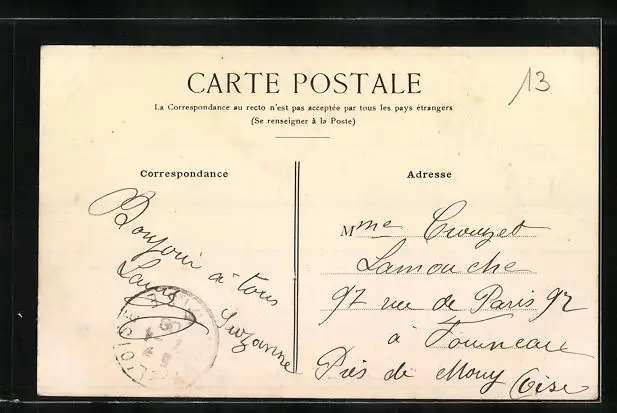 13
CARTE POSTALE
La Correspondance au recto n'est pas acceptée par tous les pays étrangers
(Se renseigner à la Poste)
Correspondance
Bonjour à tous
Suzanne
Adresse
Mme Crouzet
Lamouche
97 rue de Paris 97
à
Près de Mouy Oise